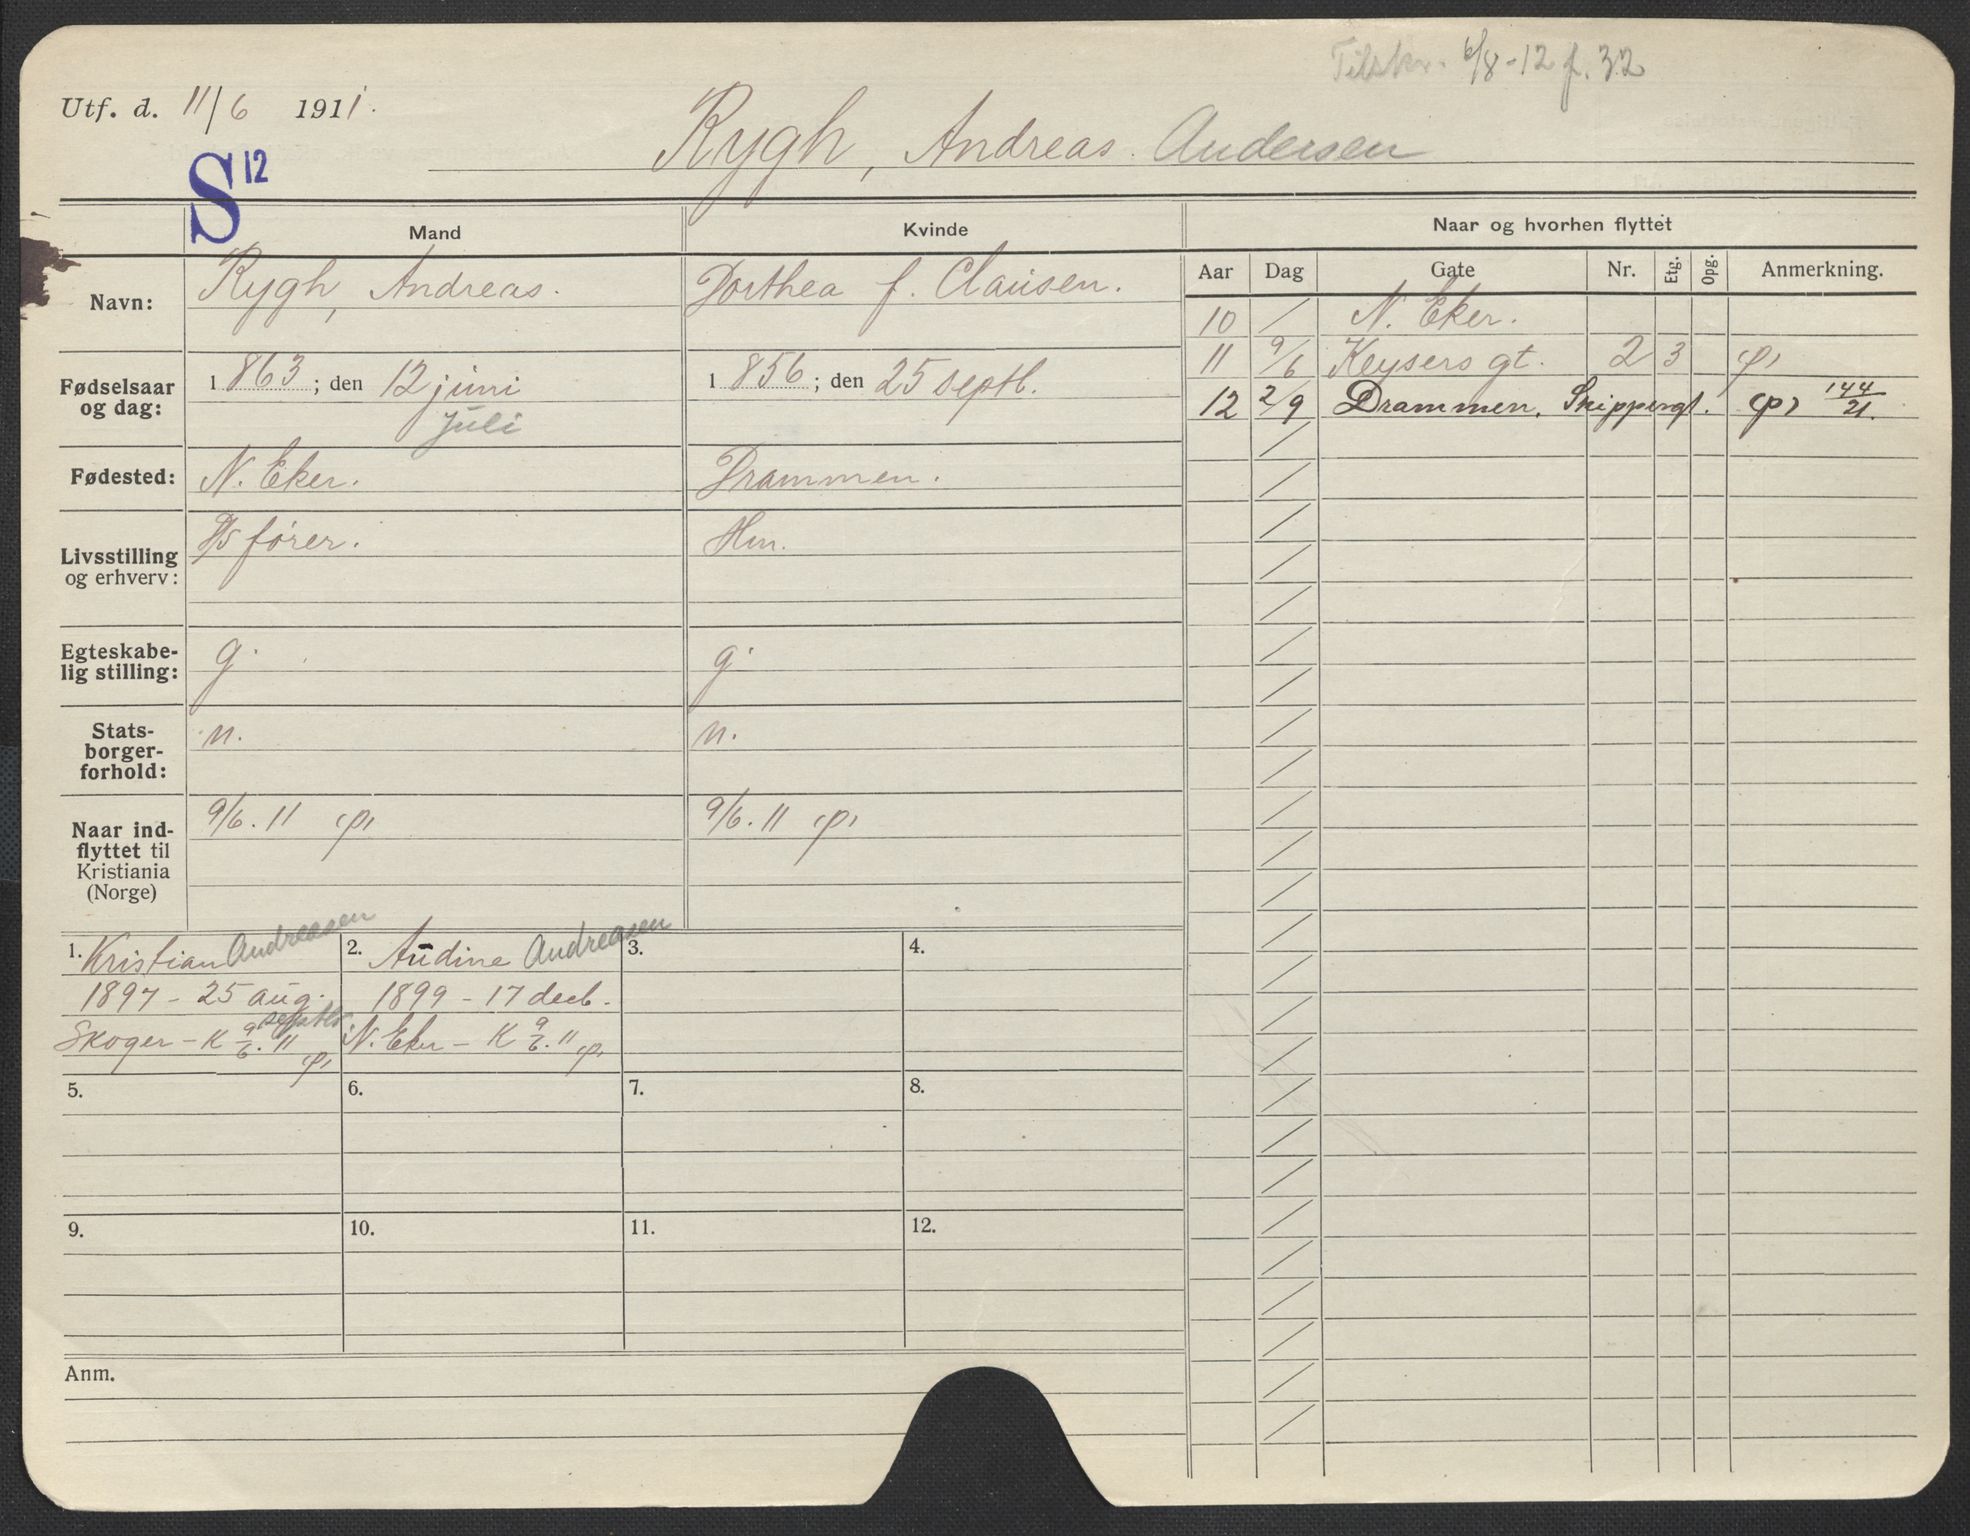 Tilskr. 6/8-12 f. 32
Utf. d. 11/6 1911.
Rygh, Andreas. Andersen
S 12
Mand
Kvinde
Naar og hvorhen flyttet
Navn:
Rygh, Andreas.
Dorthea f. Clausen.
Aar Dag Gate Nr. Etg. Opg. Anmerkning.
10 / N. Eker.
11 9/6 Keysers gt. 2 3 (p)
12 2/9 Drammen, Skippergt. (p) 144/21.
Fødselsaar
og dag:
1863; den 12 juni
Juli
1856; den 25 septb.
Fødested:
N. Eker.
Drammen.
Livsstilling
og erhverv:
D/S fører.
Hm.
Egteskabe-
lig stilling:
g.
g.
Stats-
borger-
forhold:
n.
n.
Naar ind-
flyttet til
Kristiania
(Norge)
9/6. 11 (p)
9/6. 11 (p)
1. Kristian Andreasen
1897 - 25 aug.
septbr
Skoger - K 9/6. 11 (p)
2. Audine Andreasen
1899 - 17 decb.
N. Eker - K 9/6. 11 (p)
3.
4.
5.
6.
7.
8.
9.
10.
11.
12.
Anm.